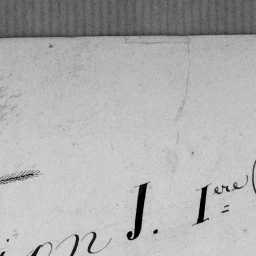 ion J. Iere (